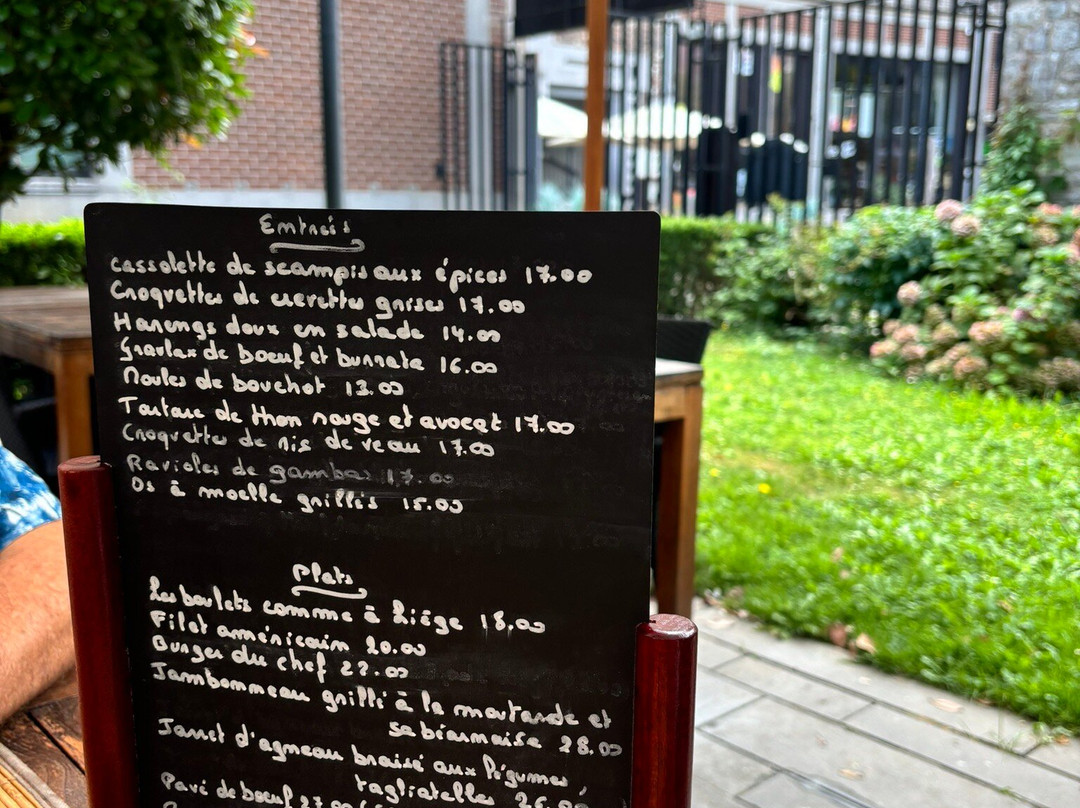 Entrées
Cassolette de scampis aux épices 17.00
Croquettes de crevettes grises 17.00
Harengs doux en salade 14.00
Gravlax de boeuf et burrata 16.00
Moules de bouchot 13.00
Tartare de thon rouge et avocat 17.00
Croquettes de ris de veau 17.00
Ravioles de gambas 17.00
Os à moelle grillés 15.00
Plats
Les boulets comme à Liège 18.00
Filet américain 20.00
Burger du chef 22.00
Jambonneau grillé à la moutarde et
sa biarnaise 28.00
Jarret d'agneau braisé aux légumes,
tagliatelles 26.00
Pavé de boeuf 27.00